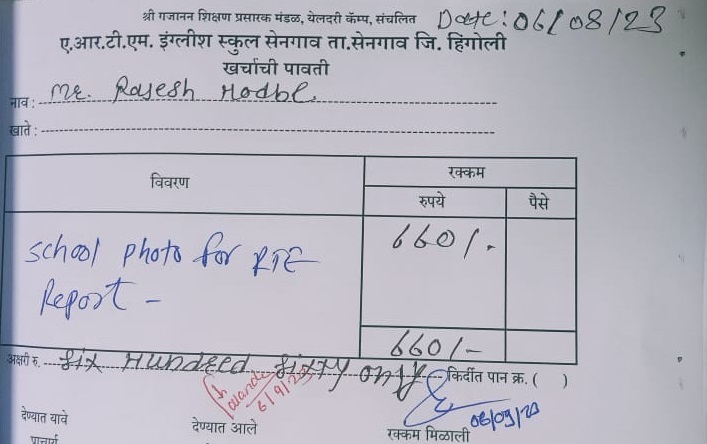 श्री गजानन शिक्षण प्रसारक मंडळ, येलदरी कॅम्प, संचलित Date: 06/08/23
ए.आर.टी.एम. इंग्लीश स्कुल सेनगाव ता.सेनगाव जि. हिंगोली
खर्चाची पावती
नाव : Mr. Rajesh Hodbe.
खाते :
विवरण रक्कम
रुपये पैसे
School photo for RTE 660/-
Report -
660/-
अक्षरी रु. Six Hundred Sixty only किर्दीत पान क्र. ( )
6/9/23
08/09/23
देण्यात यावे देण्यात आले रक्कम मिळाली
प्राचार्य